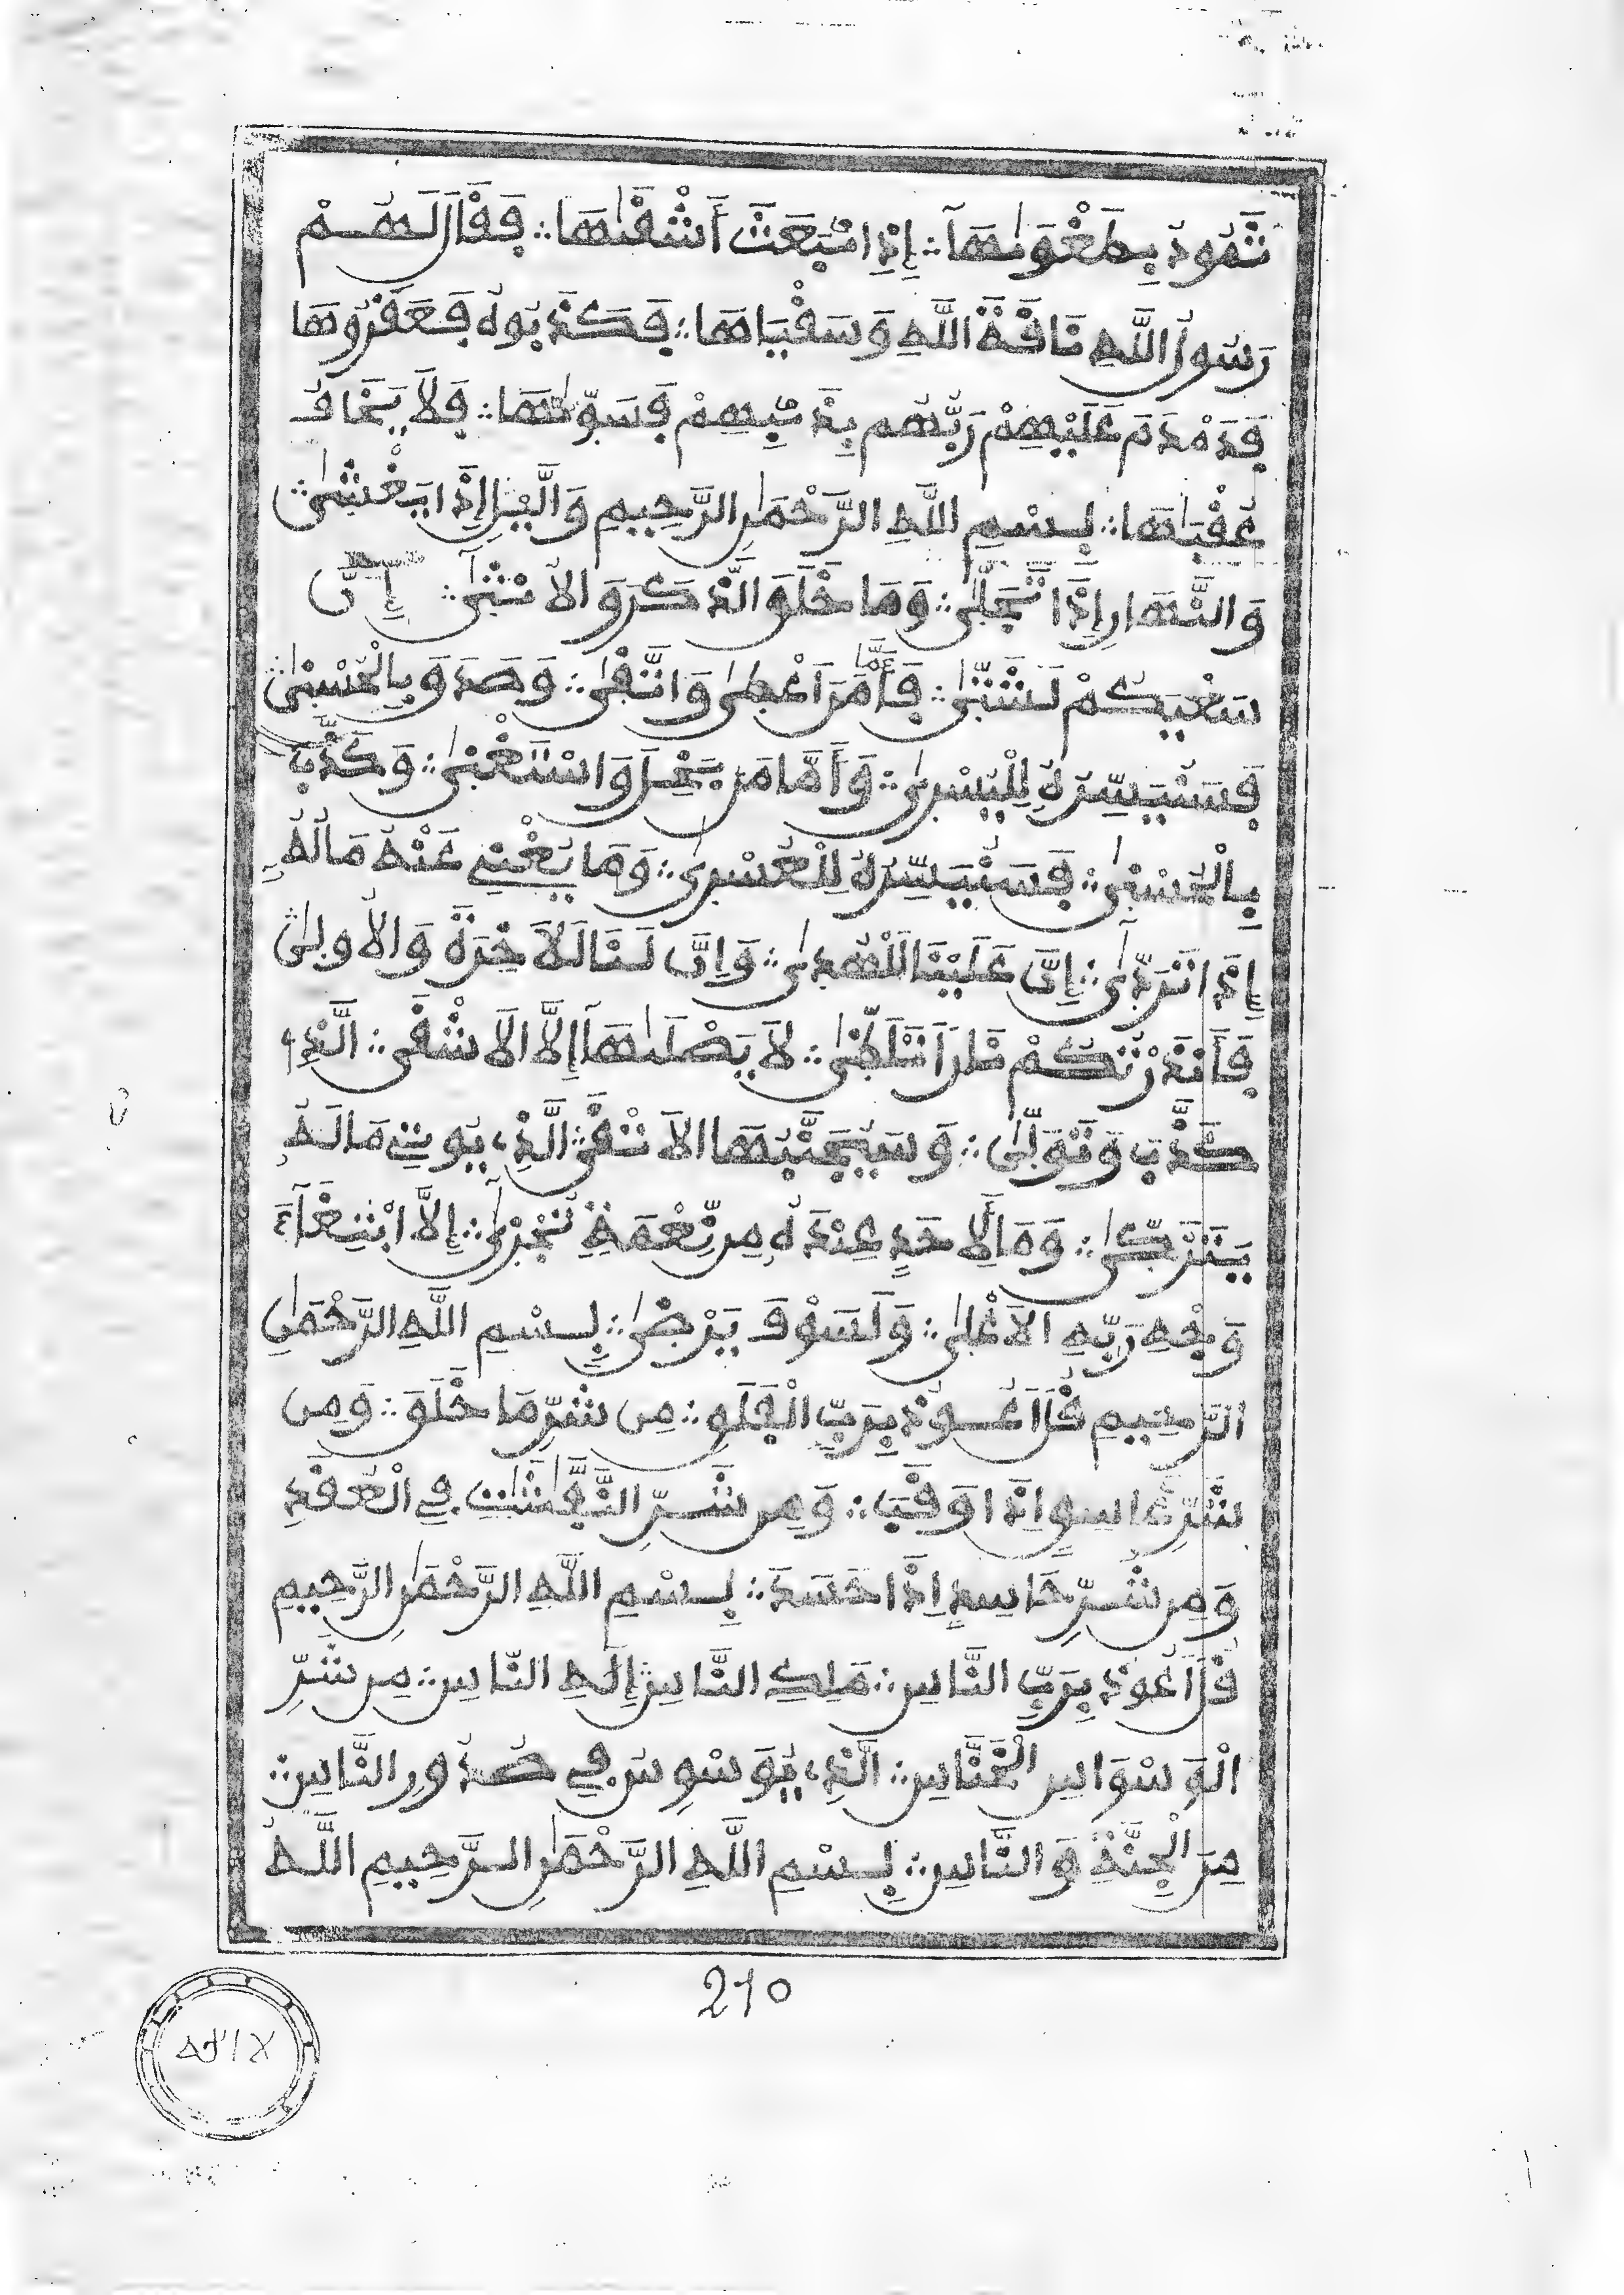 ثَمُودُ بِطَغْوَىٰهَآ ∴ إِذِ انۢبَعَثَ أَشْقَىٰهَا ∴ فَقَالَ لَهُمْ
رَسُولُ اللَّهِ نَاقَةَ اللَّهِ وَسُقْيَاهَا ∴ فَكَذَّبُوهُ فَعَقَرُوهَا
فَدَمْدَمَ عَلَيْهِمْ رَبُّهُم بِذَنۢبِهِمْ فَسَوَّىٰهَا ∴ فَلَا يَخَافُ
عُقْبَٰهَا ∴ بِسْمِ اللَّهِ الرَّحْمَٰنِ الرَّحِيمِ وَالَّيْلِ إِذَا يَغْشَىٰ ∴
وَالنَّهَارِ إِذَا تَجَلَّىٰ ∴ وَمَا خَلَقَ الذَّكَرَ وَالْأُنثَىٰٓ ∴ إِنَّ
سَعْيَكُمْ لَشَتَّىٰ ∴ فَأَمَّا مَنْ أَعْطَىٰ وَاتَّقَىٰ ∴ وَصَدَّقَ بِالْحُسْنَىٰ ∴
فَسَنُيَسِّرُهُ لِلْيُسْرَىٰ ∴ وَأَمَّا مَنۢ بَخِلَ وَاسْتَغْنَىٰ ∴ وَكَذَّبَ
بِالْحُسْنَىٰ ∴ فَسَنُيَسِّرُهُ لِلْعُسْرَىٰ ∴ وَمَا يُغْنِے عَنْهُ مَالُهُۥٓ
إِذَا تَرَدَّىٰٓ ∴ إِنَّ عَلَيْنَا لَلْهُدَىٰ ∴ وَإِنَّ لَنَا لَلْأَخِرَةَ وَالْأُولَىٰ ∴
فَأَنذَرْتُكُمْ نَارًا تَلَظَّىٰ ∴ لَا يَصْلَىٰهَآ إِلَّا الْأَشْقَى ∴ الَّذِے
كَذَّبَ وَتَوَلَّىٰ ∴ وَسَيُجَنَّبُهَا الْأَتْقَى ∴ الَّذِے يُوتِے مَالَهُ
يَتَزَكَّىٰ ∴ وَمَا لِأَحَدٍ عِندَهُۥ مِن نِّعْمَةٍ تُجْزَىٰٓ ∴ إِلَّا ابْتِغَآءَ
وَجْهِ رَبِّهِ الْأَعْلَىٰ ∴ وَلَسَوْفَ يَرْضَىٰ ∴ بِسْمِ اللَّهِ الرَّحْمَٰنِ
الرَّحِيمِ قُلْ أَعُوذُ بِرَبِّ الْفَلَقِ ∴ مِن شَرِّ مَا خَلَقَ ∴ وَمِن
شَرِّ غَاسِقٍ إِذَا وَقَبَ ∴ وَمِن شَرِّ النَّفَّٰثَٰتِ فِي الْعُقَدِ
وَمِن شَرِّ حَاسِدٍ إِذَا حَسَدَ ∴ بِسْمِ اللَّهِ الرَّحْمَٰنِ الرَّحِيمِ
قُلْ أَعُوذُ بِرَبِّ النَّاسِ ∴ مَلِكِ النَّاسِ ∴ إِلَٰهِ النَّاسِ ∴ مِن شَرِّ
الْوَسْوَاسِ الْخَنَّاسِ ∴ الَّذِے يُوَسْوِسُ فِي صُدُورِ النَّاسِ ∴
مِنَ الْجِنَّةِ وَالنَّاسِ ∴ بِسْمِ اللَّهِ الرَّحْمَٰنِ الرَّحِيمِ اللَّهُ
210